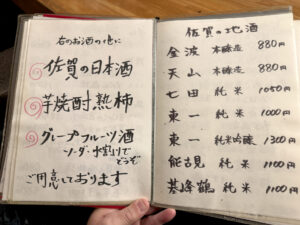 右のお酒の他に
佐賀の日本酒
芋焼酎 熟柿
グレープフルーツ酒
ソーダ・水割りで
どうぞ
ご用意しております
佐賀の地酒
金波 本醸造 880円
天山 本醸造 880円
七田 純米 1050円
東一 純米 1000円
東一 純米吟醸 1300円
能古見 純米 1100円
基峰鶴 純米 1100円